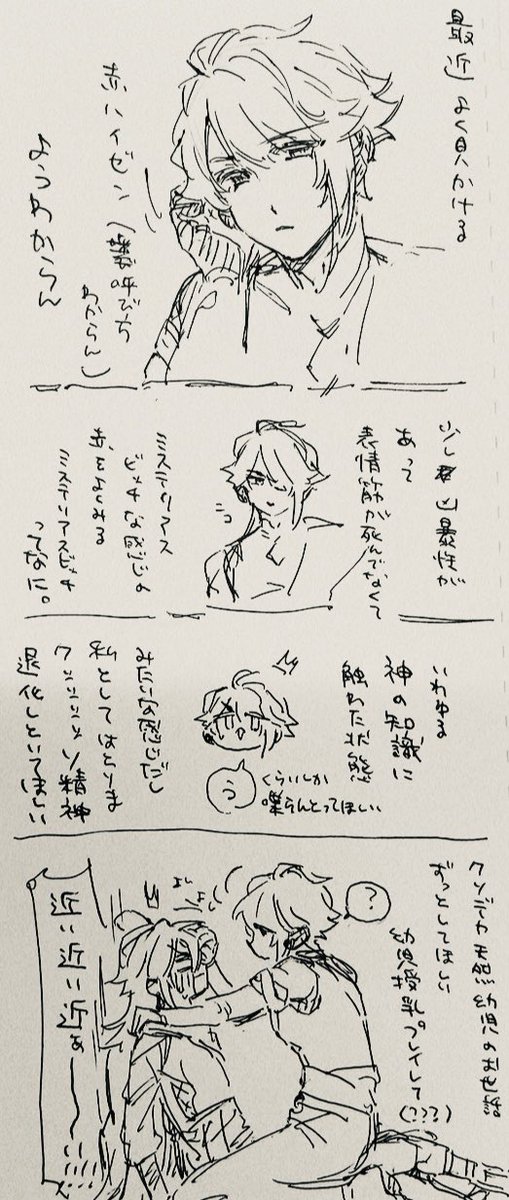 最近よく見かける
赤ハイゼン(呼び方
わからん)
ようわからん
少し凶暴性が
あって
表情筋が死んでなくて
ミステリアス
ビッチな感じの
赤をよくみる
ミステリアスビッチ
ってなに。
いわゆる
神の知識に
触れた状態
う
くらいしか
喋らんとってほしい
みたいな感じだし
私としてはとりま
クソソソソソ精神
退化しといてほしい
クソデカ天然幼児のお世話
ずっとしてほしい
?
幼児授乳プレイして
(???)
よしよし
近い近い近ぁ